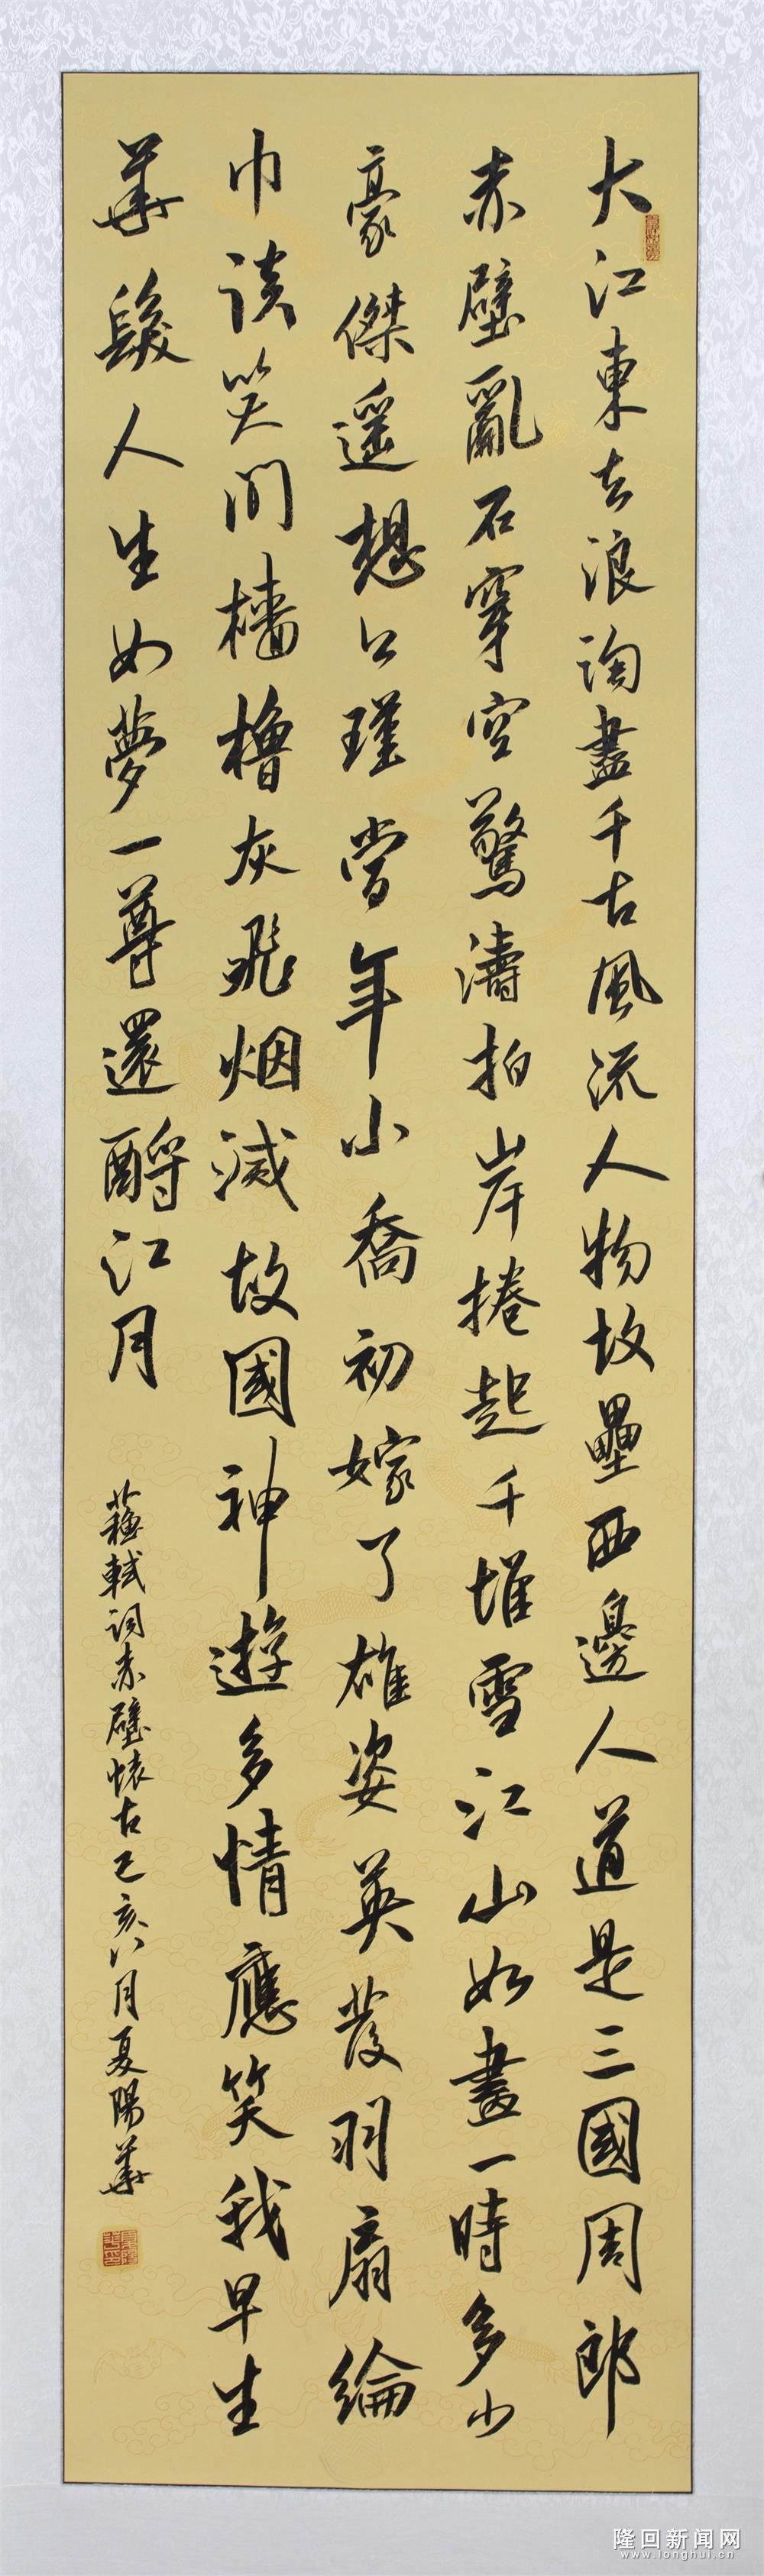 大江東去浪淘盡千古風流人物故壘西邊人道是三國周郎
赤壁亂石穿空驚濤拍岸捲起千堆雪江山如畫一時多少
豪傑遥想公瑾當年小喬初嫁了雄姿英發羽扇綸
巾談笑間檣櫓灰飛烟滅故國神遊多情應笑我早生
華髮人生如夢一尊還酹江月
蘇軾詞赤壁懷古己亥八月夏陽華
隆回新闻网
www.longhui.cn